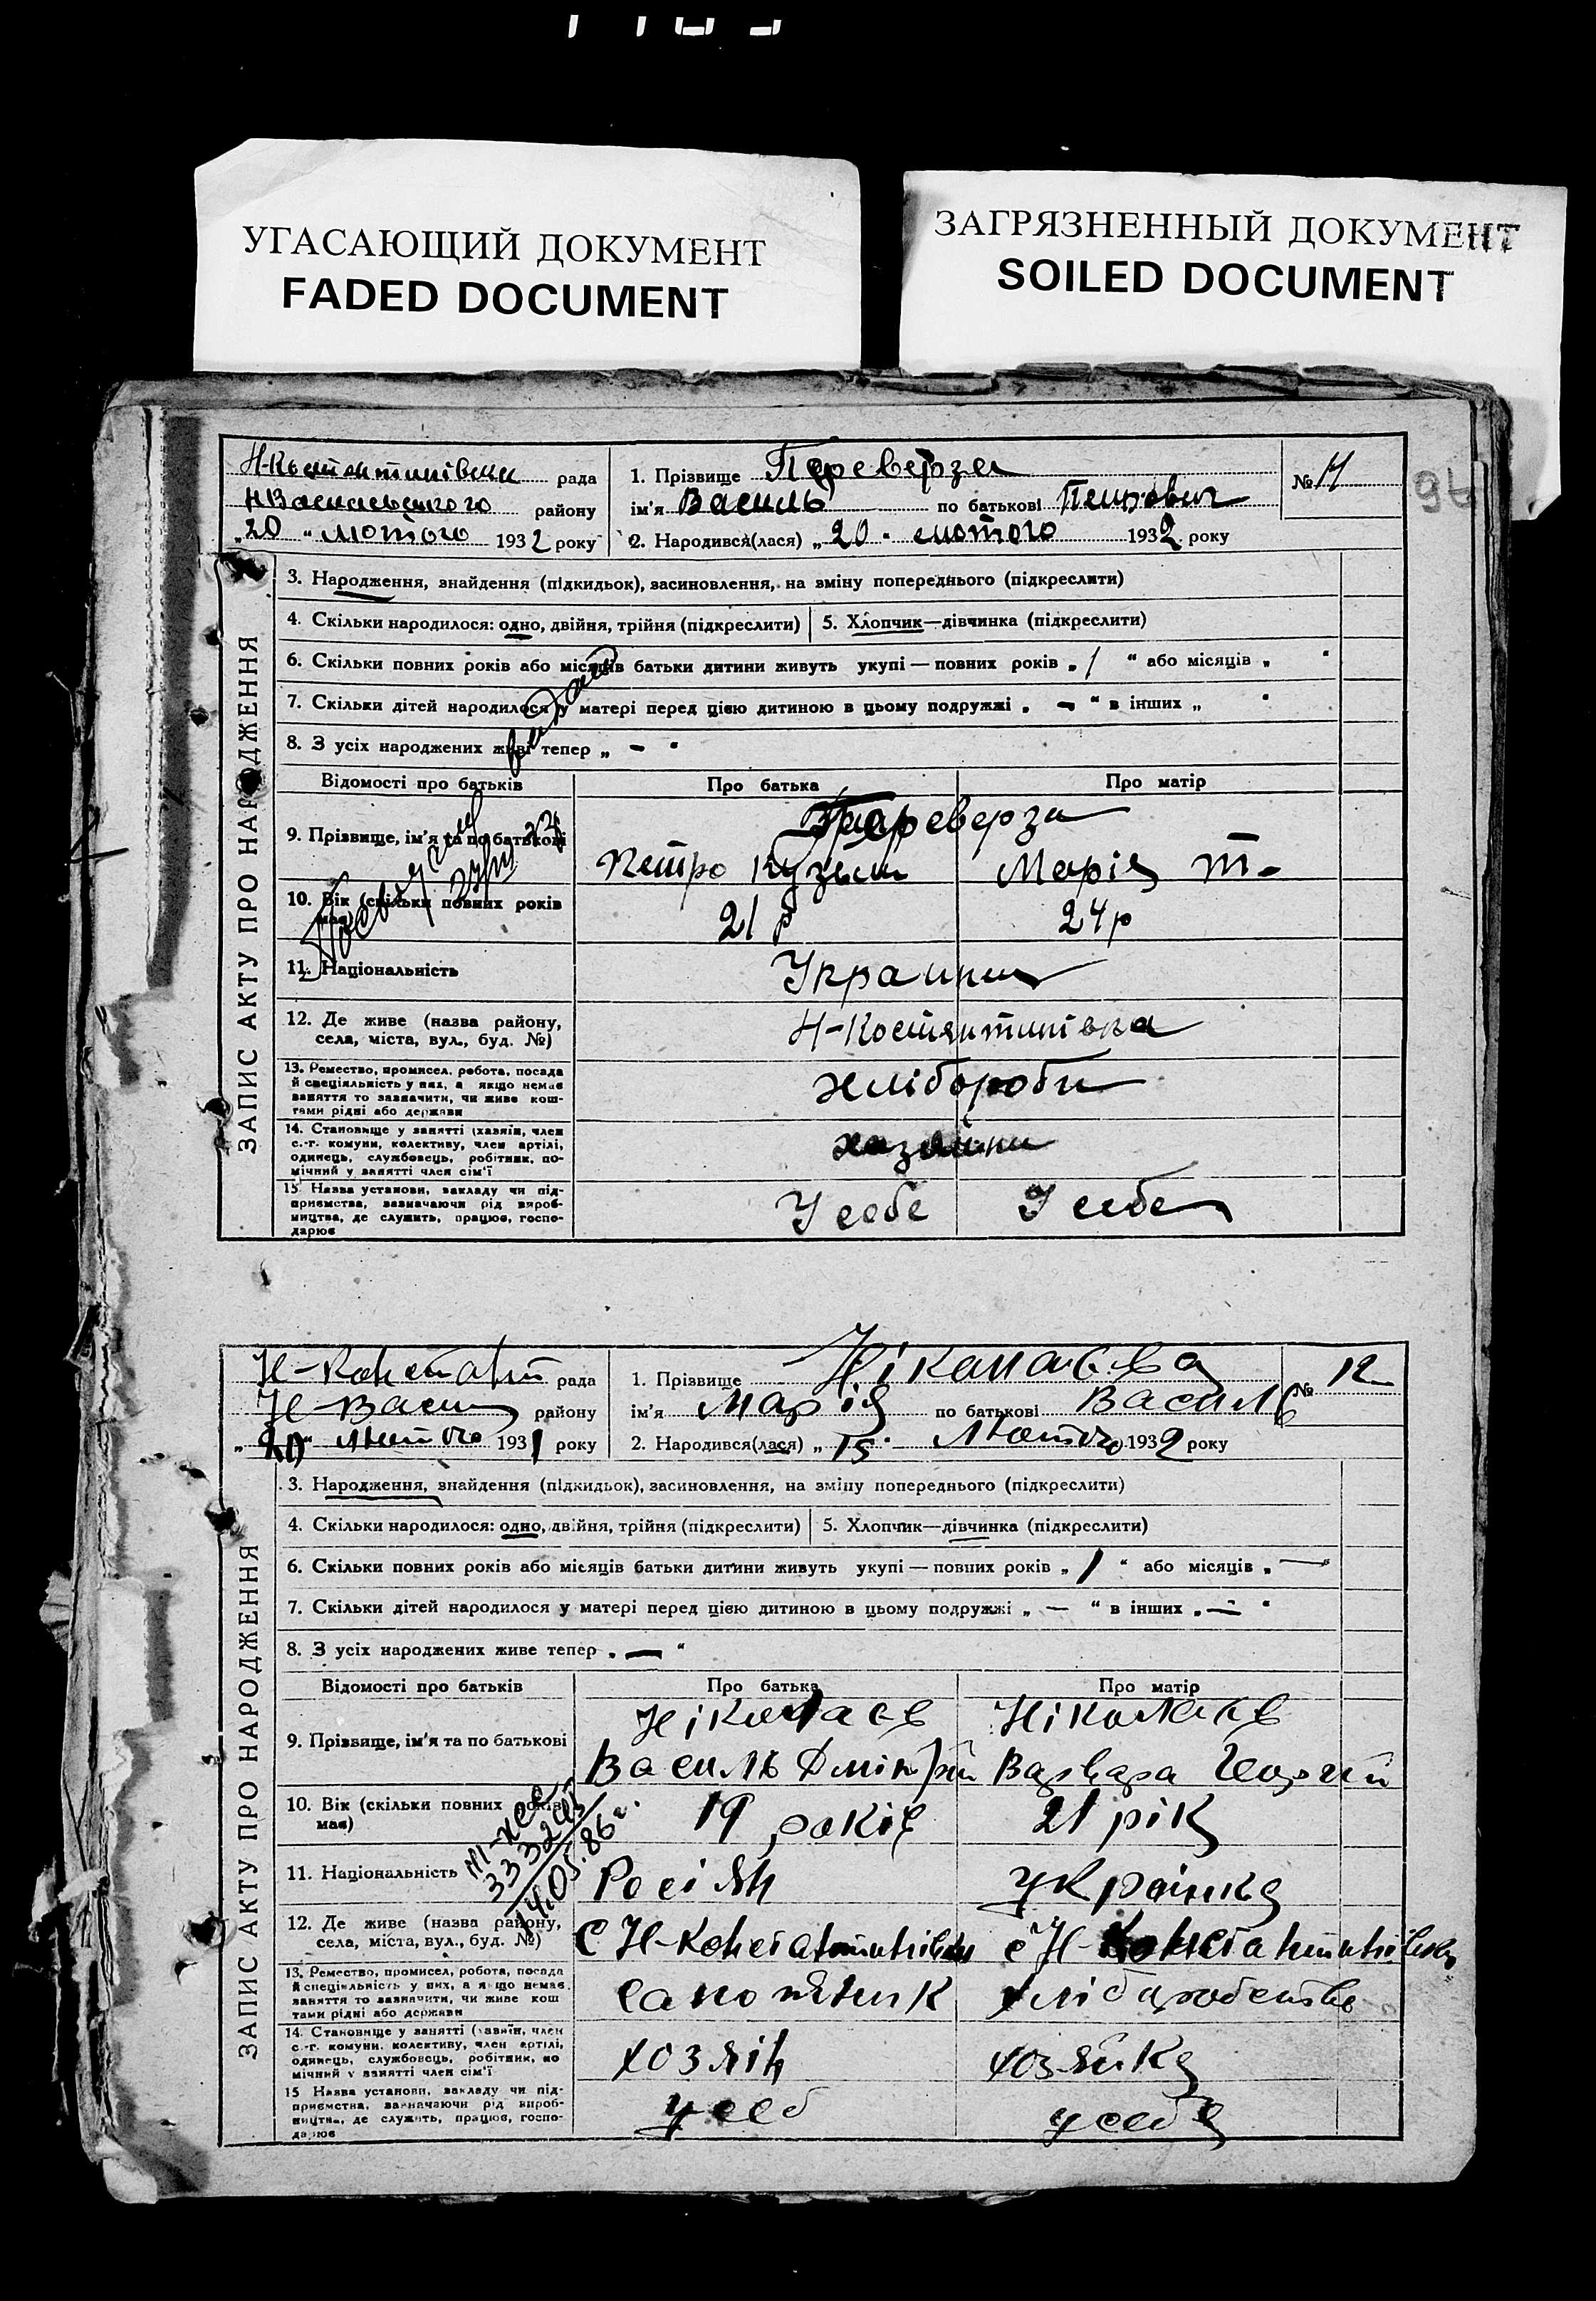 УГАСАЮЩИЙ ДОКУМЕНТ
FADED DOCUMENT
ЗАГРЯЗНЕННЫЙ ДОКУМЕНТ
SOILED DOCUMENT
96
ЗАПИС АКТУ ПРО НАРОДЖЕННЯ
рада
району
„20“ лютого 1932 року
1. Прізвище Переверза
№
ім'я Василь по батькові Петрович
2. Народився(лася) „20“ лютого 1932 року
3. Народження, знайдення (підкидьок), засиновлення, на зміну попереднього (підкреслити)
4. Скільки народилося: одно, двійня, трійня (підкреслити) 5. Хлопчик—дівчинка (підкреслити)
6. Скільки повних років або місяців батьки дитини живуть укупі — повних років „1“ або місяців „ “
7. Скільки дітей народилося у матері перед цією дитиною в цьому подружжі „—“ в інших „ “
8. З усіх народжених живе тепер „—“
Відомості про батьків Про батька Про матір
9. Прізвище, ім'я та по батькові
Переверза
Петро Кузьм Марія Т.
10. Вік (скільки повних років має) 21 р 24 р
11. Національність
12. Де живе (назва району, села, міста, вул., буд. №) Н-Костянтинівка
13. Ремество, промисел, робота, посада й спеціяльність у них, а якщо немає заняття то зазначити, чи живе коштами рідні або держави
хлібороби
14. Становище у занятті (хазяїн, член с.-г. комуни, колективу, член артілі, одинець, службовець, робітник, помічний у занятті член сім'ї
15. Назва установи, закладу чи підприємства, зазначаючи рід виробництва, де служить, працює, господарює
У себе У себе
ЗАПИС АКТУ ПРО НАРОДЖЕННЯ
Н-Констант рада
Н-Васи району
„20“ лютого 1931 року
1. Прізвище Ніколаєва
№ 12
ім'я Марія по батькові Василь
2. Народився(лася) „15“ Лютого 1932 року
3. Народження, знайдення (підкидьок), засиновлення, на зміну попереднього (підкреслити)
4. Скільки народилося: одно, двійня, трійня (підкреслити) 5. Хлопчик—дівчинка (підкреслити)
6. Скільки повних років або місяців батьки дитини живуть укупі — повних років „1“ або місяців „—“
7. Скільки дітей народилося у матері перед цією дитиною в цьому подружжі „—“ в інших „—“
8. З усіх народжених живе тепер „—“
Відомості про батьків Про батька Про матір
9. Прізвище, ім'я та по батькові
Ніколаєв Ніколаєв
Василь Дмітрій Варвара
10. Вік (скільки повних років має) 19 років 21 рік
14.05.86 г.
11. Національність Росіян українка
12. Де живе (назва району, села, міста, вул., буд. №)
13. Ремество, промисел, робота, посада й спеціяльність у них, а якщо немає заняття то зазначити, чи живе коштами рідні або держави
14. Становище у занятті (хазяїн, член с.-г. комуни, колективу, член артілі, одинець, службовець, робітник, помічний у занятті член сім'ї
хозяїн хозяйка
15 Назва установи, закладу чи підприємства, зазначаючи рід виробництва, де служить, працює, господарює
у себ у себе